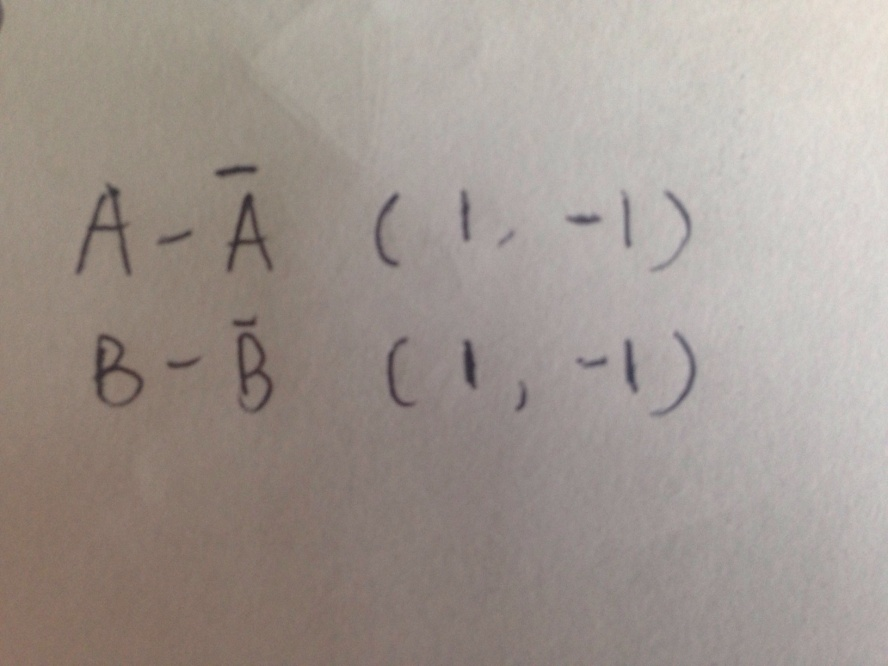 A - Ā (1, -1)
B - B̄ (1, -1)